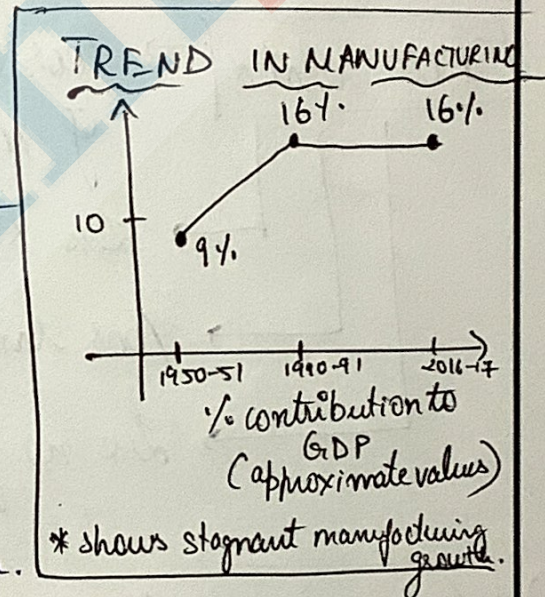 TREND IN MANUFACTURING
16%. 16%.
10
9%.
1950-51 1990-91 2016-17
% contribution to
GDP
(approximate values)
* shows stagnant manufacturing
growth.